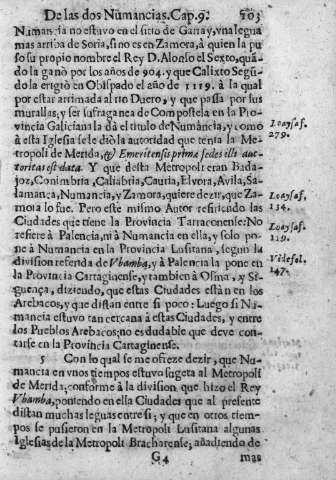 De las dos Numancias. Cap. 9. 103
Numancia no estuvo en el sitio de Garray, vna legua
mas arriba de Soria, si no es en Zamora, à quien la pu
so su propio nombre el Rey D. Alonso el Sexto, quã-
do la ganò por los años de 904. y que Calixto Segũ-
do la erigiò en Obispado el año de 1119. à la qual
por estar arrimada al rio Duero, y que passa por sus
murallas, y ser sufraganea de Compostela en la Pro-
vincia Galiciana la dà el titulo de Numãcia, y como
à esta Iglesia se le diò la autoridad que tenia la Me-
tropoli de Merida, & Emeritensis prima sedes illi auc-
toritas est data. Y que desta Metropoli eran Bada-
joz, Conimbria, Caliabria, Cauria, Elvora, Avila, Sa-
lamanca, Numancia, y Zamora, quiere dezir, que Za-
mora lo fue. Pero este mismo Autor refiriendo las
Ciudades que tiene la Provincia Tarraconense: No
refiere à Palencia, ni à Numancia en ella, y solo po-
ne à Numancia en la Provincia Lusitana, segun la
division referida de Vbamba, y à Palencia la pone en
la Provincia Cartaginense, y tambien à Osma, y Si-
guença, diziendo, que estas Ciudades estàn en los
Arebacos, y que distan entre si poco: Luego si Nu-
mancia estuvo tan cercana à estas Ciudades, y entre
los Pueblos Arebacos: no es dudable que deve con-
tarse en la Provincia Cartaginense.
5 Con lo qual se me ofreze dezir, que Nu-
mancia en vnos tiempos estuvo sugeta al Metropoli
de Merida, conforme à la division que hizo el Rey
Vbamba, poniendo en ella Ciudades que al presente
distan muchas leguas entre si; y que en otros tiem-
pos se pusieron en la Metropoli Lusitana algunas
Iglesias de la Metropoli Bracharense, añadiendo de
G4 mas
Loaysas.
279.
Loaysas.
134.
Loaysas.
119.
147.